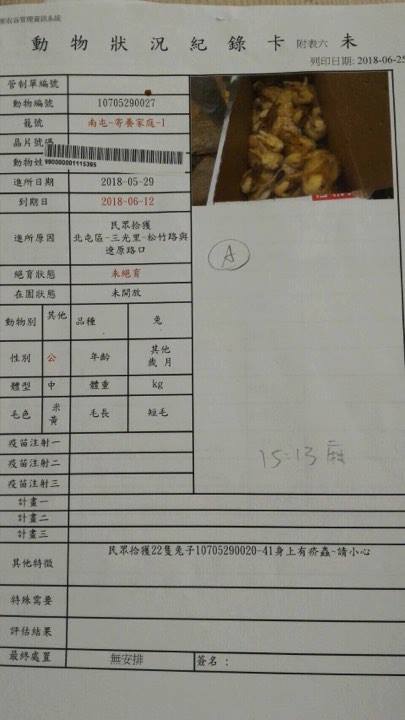 動物狀況紀錄卡 附表六 未
列印日期: 2018-06-25
管制單編號
動物編號 10705290027
籠號 南屯-寄養家庭-1
晶片號碼
動物姓
900000001115395
進所日期 2018-05-29
到期日 2018-06-12
進所原因 民眾拾獲
北屯區-三光里-松竹路與
遼原路口
絕育狀態 未絕育
在園狀態 未開放
動物別 其他 品種 兔
性別 公 年齡 其他
歲 月
體型 中 體重 kg
毛色 米黃 毛長 短毛
疫苗注射一
疫苗注射二
疫苗注射三
計畫一
計畫二
計畫三
其他特徵 民眾拾獲22隻兔子10705290020-41身上有疥蟲~請小心
特殊需要
評估結果
最終處置 無安排 簽名：
A
15:13